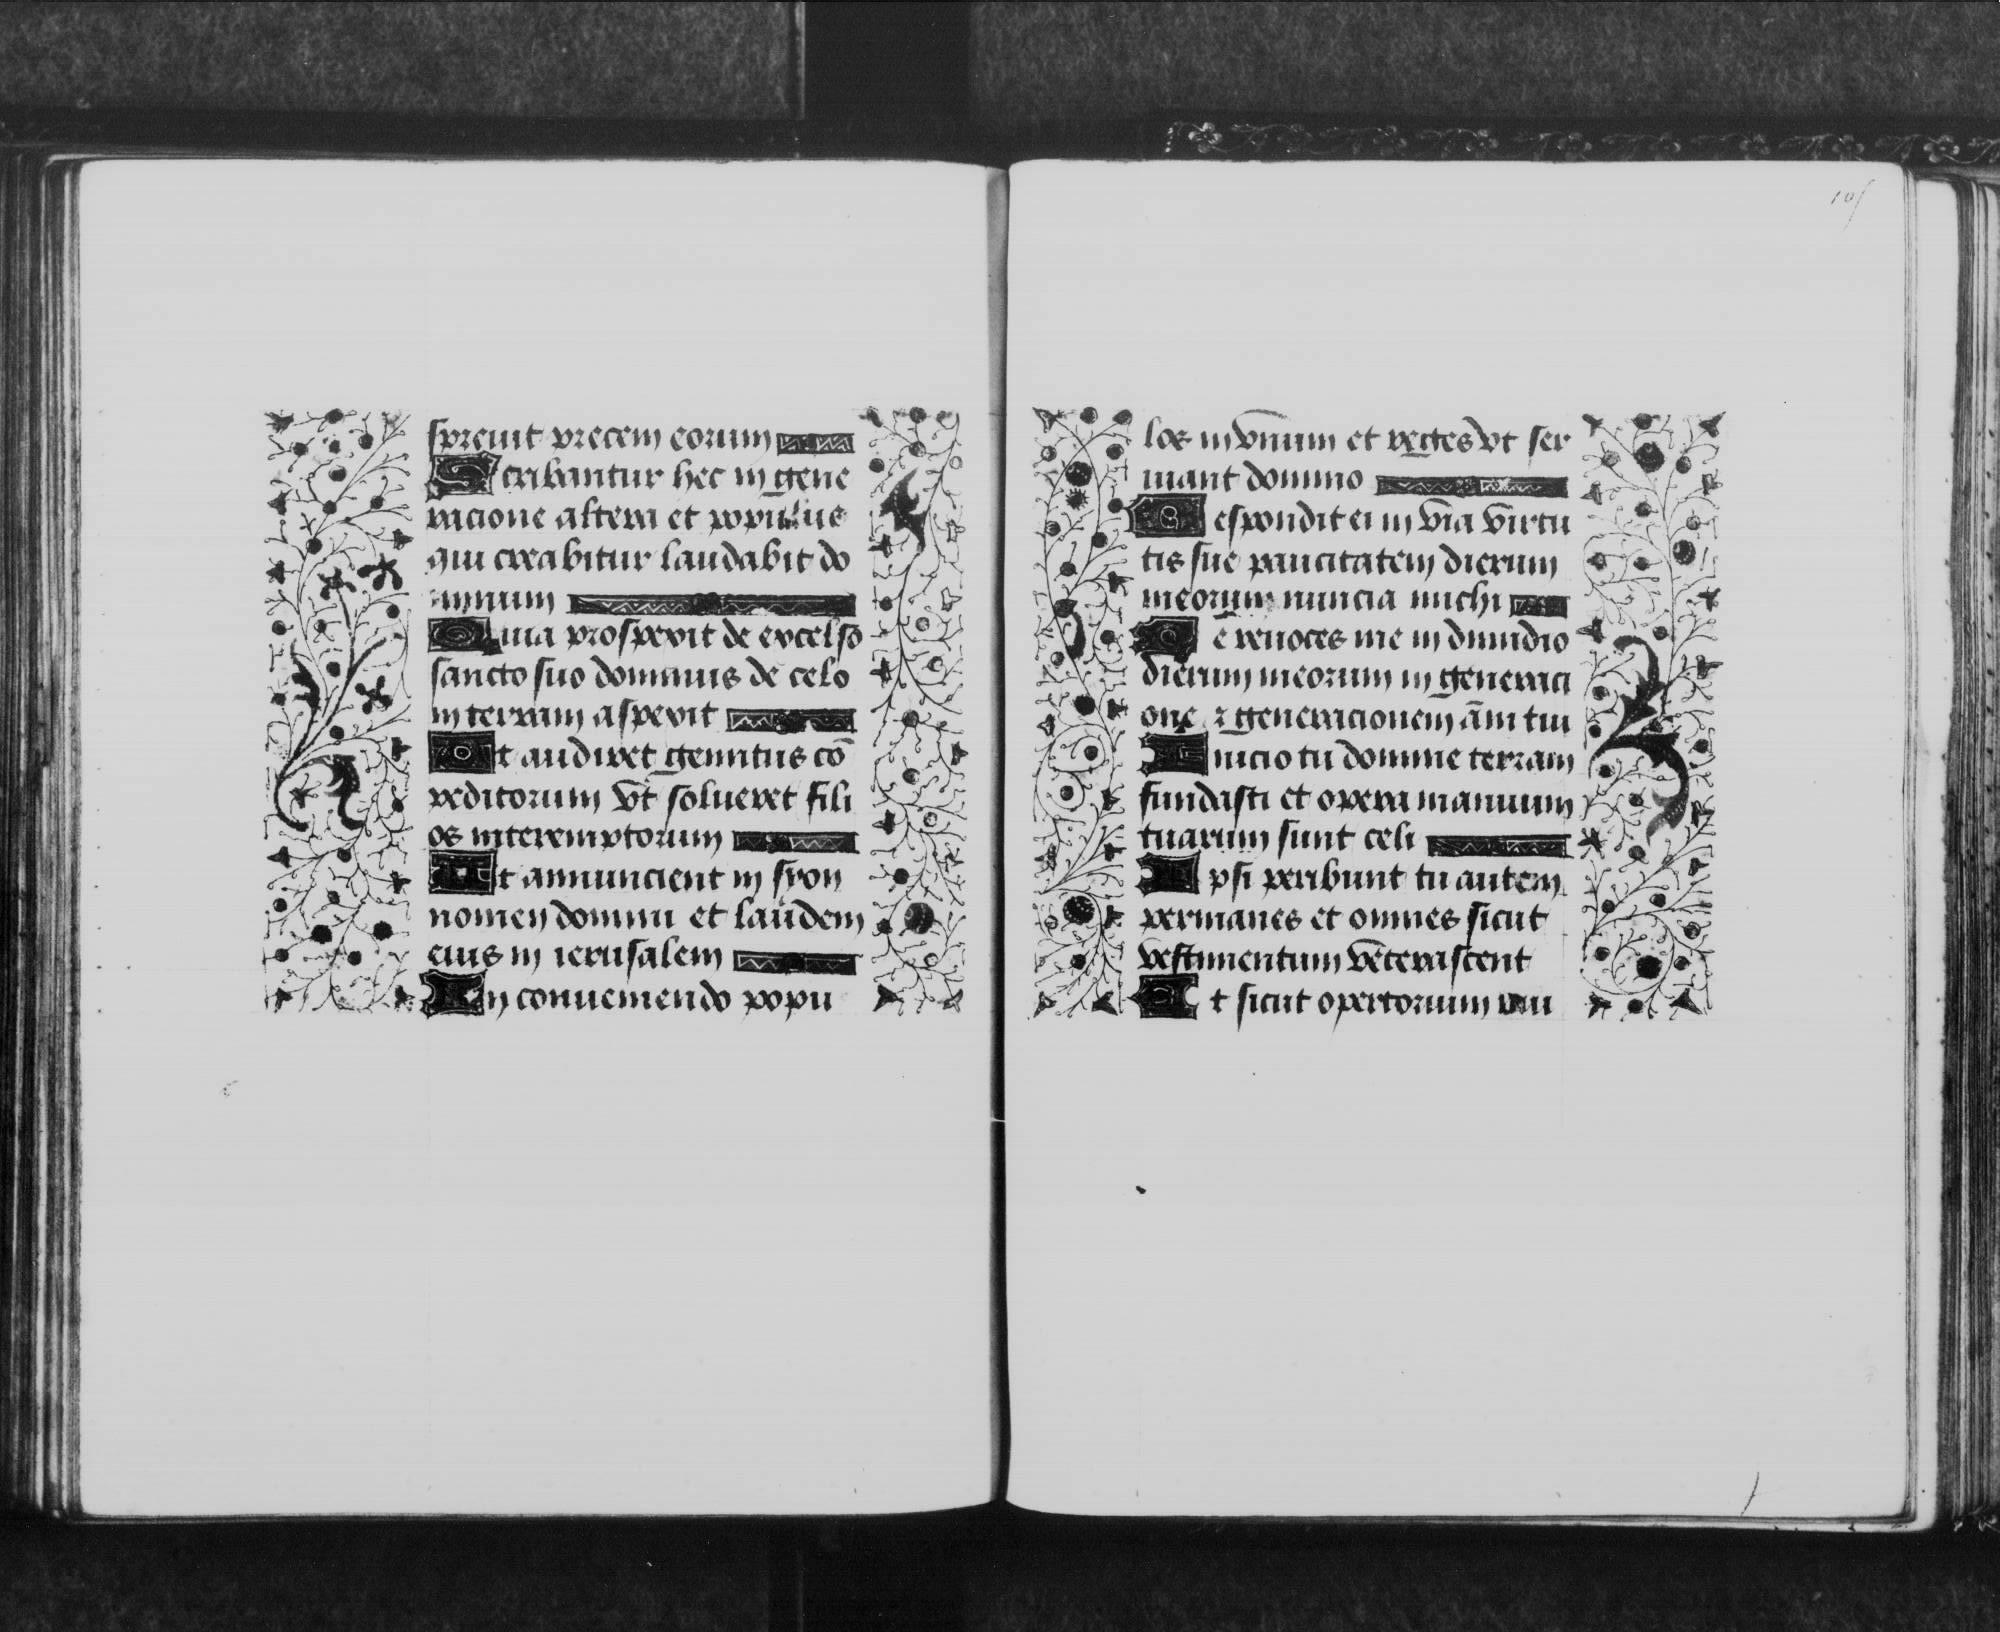 spreuit precem eorum
Scribantur hec in gene
racione altera et populus
qui creabitur laudabit do
minum
Quia prospexit de excelso
sancto suo dominus de celo
in terram aspexit
Ut audiret gemitus cō
peditorum vt solueret fili
os interemptorum
Ut annuncient in syon
nomen domini et laudem
eius in ierusalem
In conueniendo popu
105
los in vnum et reges vt ser
uiant domino
Respondit ei in via virtu
tis sue paucitatem dierum
meorum nuncia michi
Ne reuoces me in dimidio
dierum meorum in generaci
one ⁊ generacionem āni tui
Inicio tu domine terram
fundasti et opera manuum
tuarum sunt celi
Ipsi peribunt tu autem
permanes et omnes sicut
vestimentum veterascent
Et sicut opertorium mu